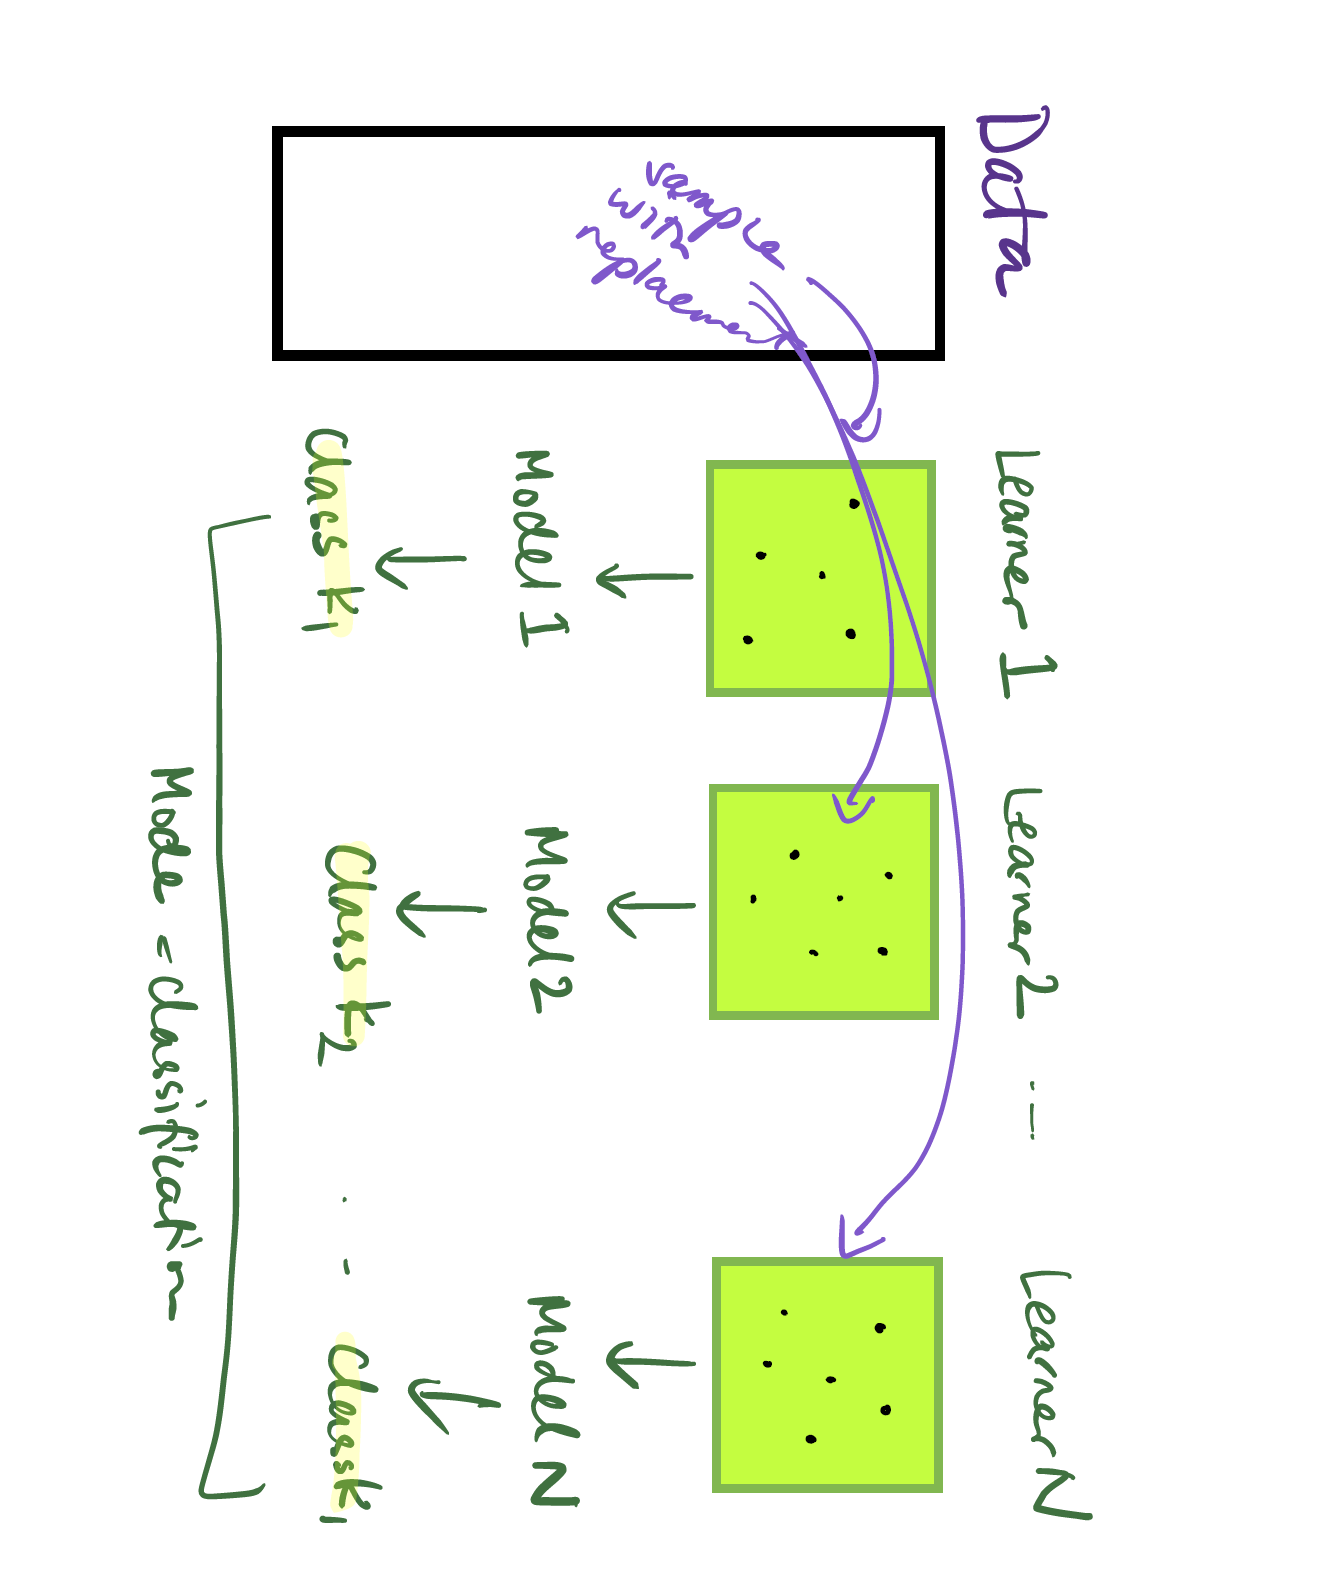 Data
sample
with
replacement
Learner 1
Learner 2
Learner N
Model 1
Model 2
Model N
Class k₁
Class k₂
Class k₁
Mode = classification